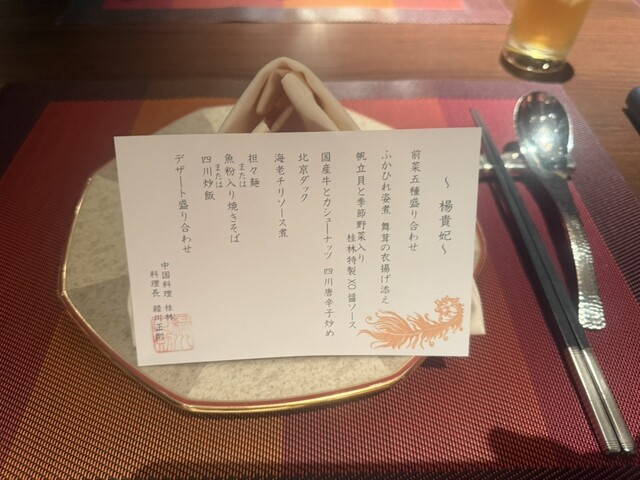 ～ 楊貴妃～
前菜五種盛り合わせ
ふかひれ姿煮 舞茸の衣揚げ添え
帆立貝と季節野菜入り
桂林特製XO醤ソース
国産牛とカシューナッツ 四川唐辛子炒め
北京ダック
海老チリソース煮
担々麺
または
魚粉入り焼きそば
または
四川炒飯
デザート盛り合わせ
中国料理 桂林
料理長